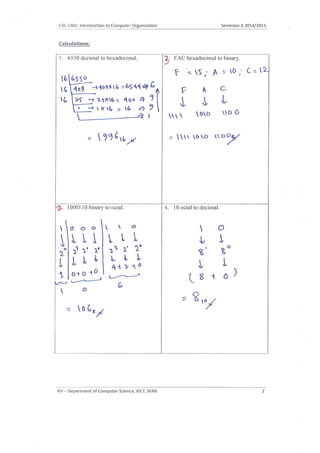 CSC 1401: Introduction to Computer Organisation Semester II 2014/2015
Calculations:
1. 6550 decimal to hexadecimal.
16 6550
16 409 → 409×16 = 6544 ⇒ 6
16 25 → 25×16 = 400 ⇒ 9
1 → 1×16 = 16 ⇒ 9
⇒ 1
= 1996₁₆
3. FAC hexadecimal to binary.
F = 15 ; A = 10 ; C = 12
F A C
↓ ↓ ↓
1111 1010 1100
= 1111 1010 1100₂
2. 1000110 binary to octal.
1 0 0 0 1 1 0
↓ ↓ ↓ ↓ ↓ ↓ ↓
2⁰ 2² 2¹ 2⁰ 2² 2¹ 2⁰
↓ ↓ ↓ ↓ ↓ ↓ ↓
1 0+0+0 4+2+0
1 0 6
= 106₈
4. 10 octal to decimal.
1 0
↓ ↓
8¹ 8⁰
↓ ↓
( 8 + 0 )
= 8₁₀
- Department of Computer Science, KICT, IIUM 2